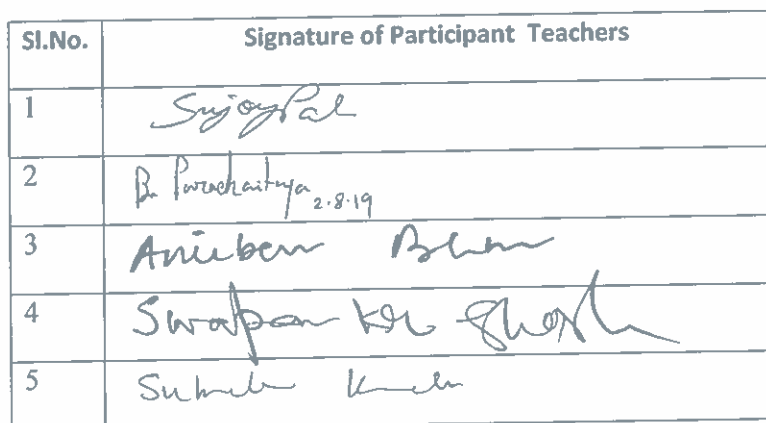 Sl.No. Signature of Participant Teachers
1 Sujoy Pal
2 Br. 2.8.19
3 Anirban
4 Swapan Kr Ghosh
5